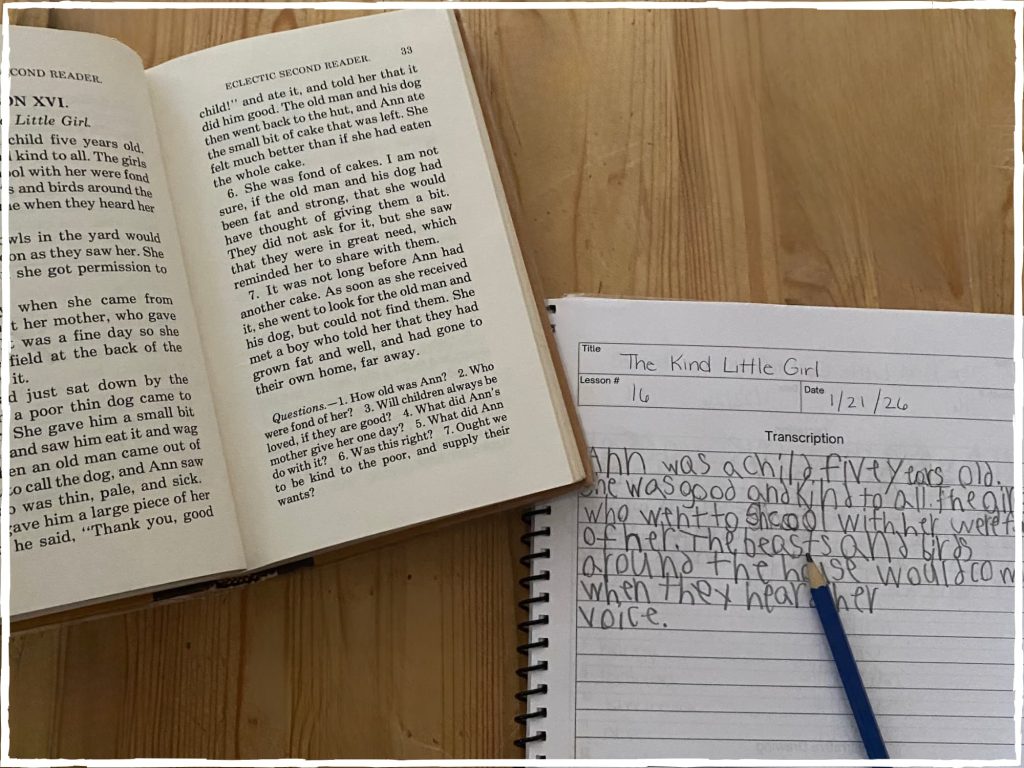 COND READER.
ON XVI.
Little Girl.
child five years old,
kind to all. The girls
ool with her were fond
s and birds around the
e when they heard her
wls in the yard would
on as they saw her. She
she got permission to
when she came from
t her mother, who gave
was a fine day so she
field at the back of the
it.
d just sat down by the
a poor thin dog came to
She gave him a small bit
and saw him eat it and wag
en an old man came out of
o call the dog, and Ann saw
o was thin, pale, and sick.
gave him a large piece of her
he said, "Thank you, good
ECLECTIC SECOND READER. 33
child!" and ate it, and told her that it
did him good. The old man and his dog
then went back to the hut, and Ann ate
the small bit of cake that was left. She
felt much better than if she had eaten
the whole cake.
6. She was fond of cakes. I am not
sure, if the old man and his dog had
been fat and strong, that she would
have thought of giving them a bit.
They did not ask for it, but she saw
that they were in great need, which
reminded her to share with them.
7. It was not long before Ann had
another cake. As soon as she received
it, she went to look for the old man and
his dog, but could not find them. She
met a boy who told her that they had
grown fat and well, and had gone to
their own home, far away.
Questions.—1. How old was Ann? 2. Who
were fond of her? 3. Will children always be
loved, if they are good? 4. What did Ann's
mother give her one day? 5. What did Ann
do with it? 6. Was this right? 7. Ought we
to be kind to the poor, and supply their
wants?
Title The Kind Little Girl
Lesson # 16 Date 1/21/26
Transcription
Ann was a child five years old.
She was good and kind to all. the girl
who went to shcool with her were f
of her. The beasts and birds
around the house would com
when they heard her
voice.